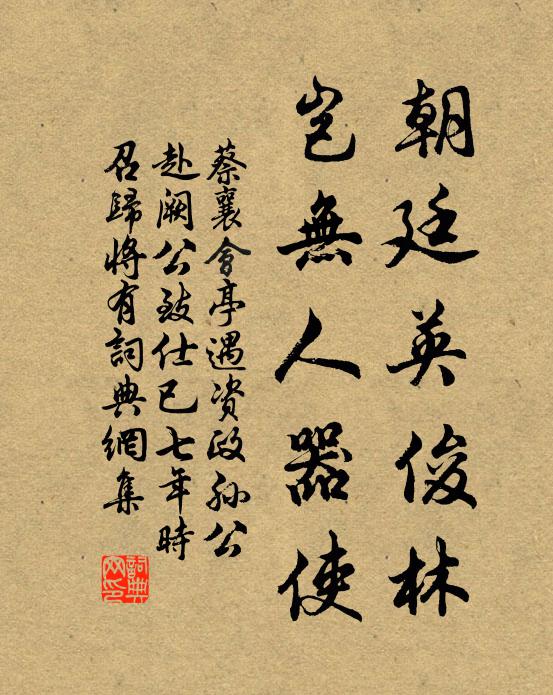 朝廷英俊林
豈無人器使
蔡襄會亭遇資政孙公
赴阙公致仕已七年時
召歸將有詞典網集
詞典网印